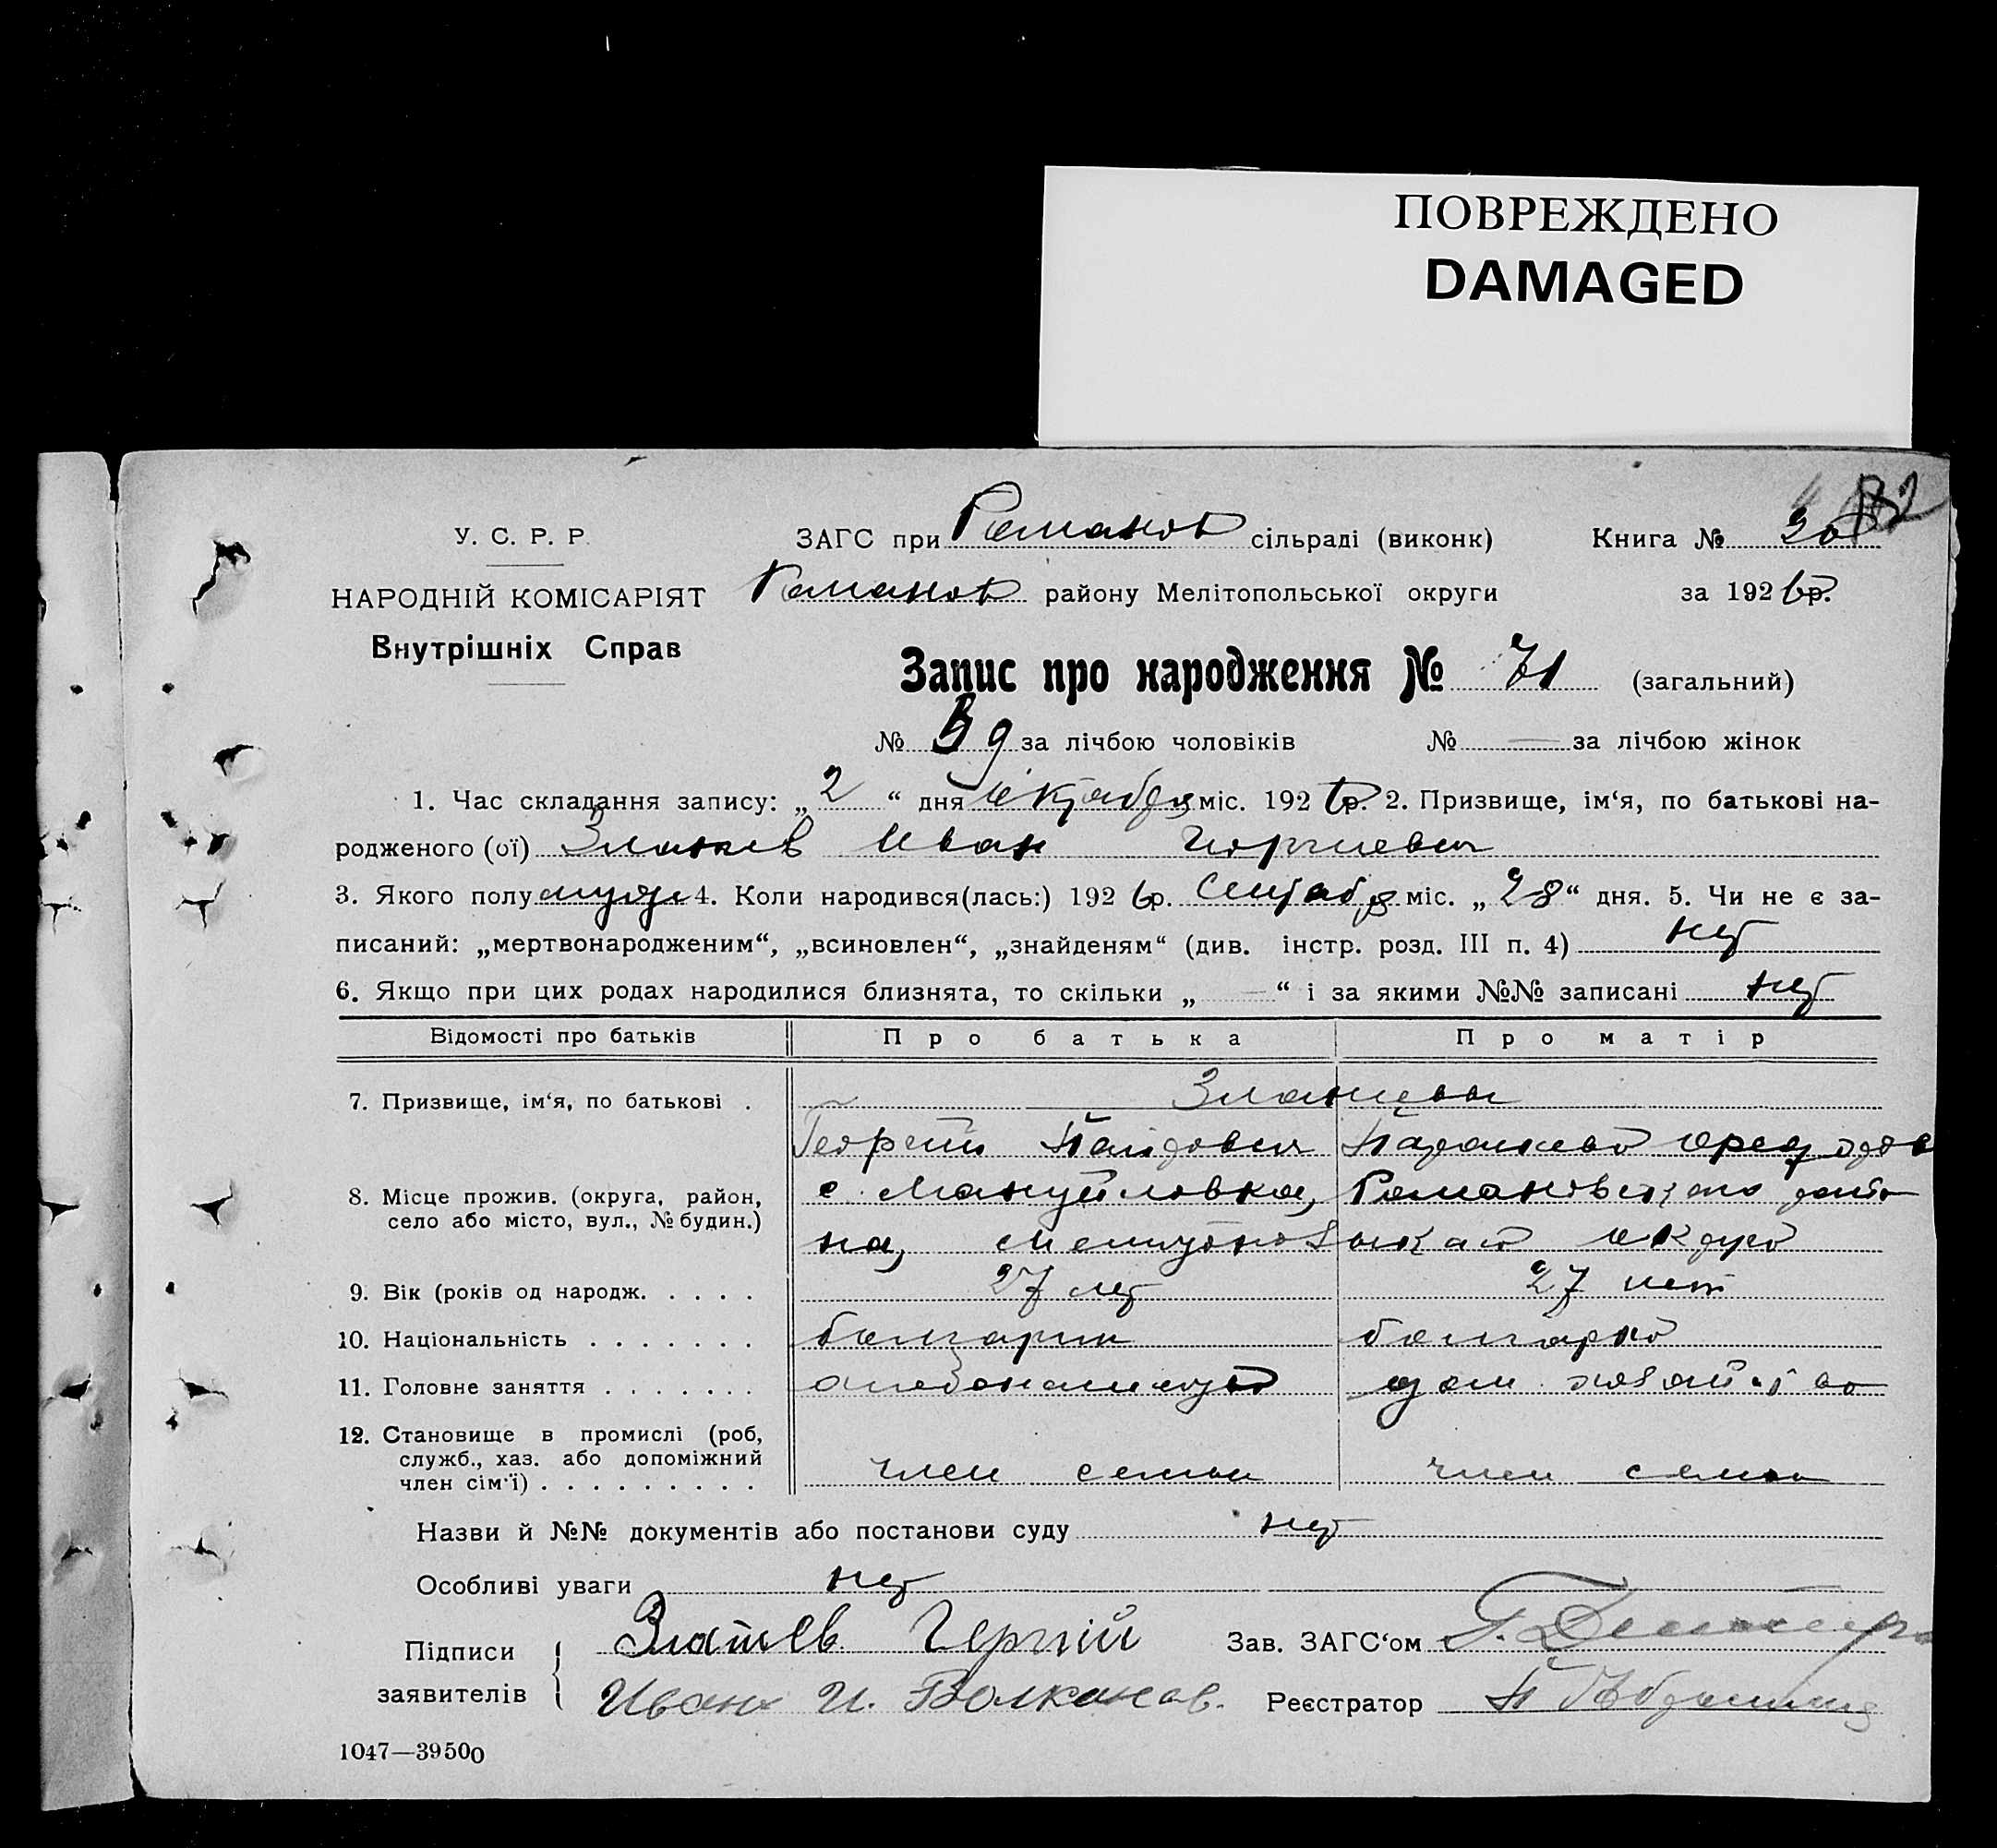 ПОВРЕЖДЕНО
DAMAGED
У. С. Р. Р.
НАРОДНІЙ КОМІСАРІЯТ
Внутрішніх Справ
ЗАГС при Романов сільраді (виконк)
Книга № 20
Романов району Мелітопольської округи
за 1926 р.
Запис про народження № 71 (загальний)
№ 39 за лічбою чоловіків № — за лічбою жінок
1. Час складання запису: „2“ дня октября міс. 1926 р. 2. Призвище, ім‘я, по батькові на-
родженого (ої) Златев Иван Георгиевич
3. Якого полу муж 4. Коли народився(лась:) 1926 р. сентября міс. „28“ дня. 5. Чи не є за-
писаний: „мертвонародженим“, „всиновлен“, „знайденям“ (див. інстр. розд. III п. 4) нет
6. Якщо при цих родах народилися близнята, то скільки „—“ і за якими №№ записані нет
Відомості про батьків Про батька Про матір
7. Призвище, ім‘я, по батькові . Златевы
Георгий Парасковья
8. Місце прожив. (округа, район, с. Мануйловка, Романовского райо
село або місто, вул., № будин.)
на, Мелитопольской округ
9. Вік (років од народж. . . . . 27 лет 27 лет
10. Національність . . . . . . . болгарин болгарка
11. Головне заняття . . . . . . . дом хозяйство
12. Становище в промислі (роб,
служб., хаз. або допоміжний
член сім‘ї) . . . . . . . . . член семьи член семьи
Назви й №№ документів або постанови суду нет
Особливі уваги нет
Підписи
заявителів
Златев Гергий
Зав. ЗАГС‘ом
Иван И. Волканов.
Реєстратор
1047—39500